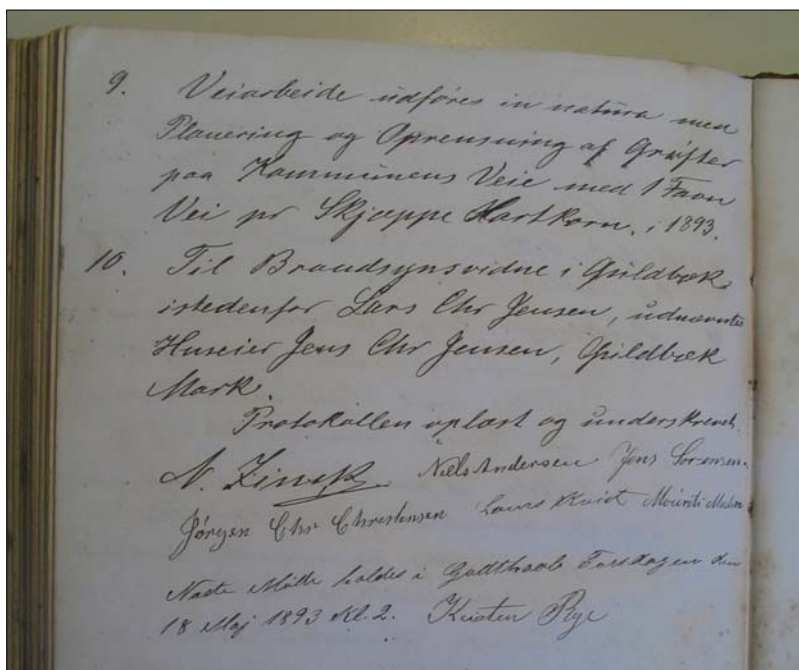 9. Veiarbeide udføres in natura med
Planering og Oprensning af Grøfter
paa Kommunens Veie med 1 Favn
Vei pr Skjæppe Hartkorn, i 1893.
10. Til Brandsynsvidne i Guldbæk
istedenfor Lars Chr Jensen, udnævntes
Huseier Jens Chr Jensen, Guldbæk
Mark.
Protokollen oplæst og underskrevet.
N. Zinck Niels Andersen Jens Sørensen.
Jørgen Chr Christensen Laurs Kvist
Næste Møde holdes i Godthaab Torsdagen den
18 Maj 1893 Kl. 2. Kristen Rye